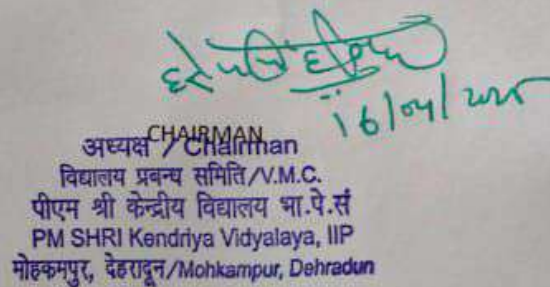 16/04/2025
CHAIRMAN
अध्यक्ष / Chairman
विद्यालय प्रबन्ध समिति/V.M.C.
पीएम श्री केन्द्रीय विद्यालय भा.पे.सं
PM SHRI Kendriya Vidyalaya, IIP
मोहकमपुर, देहरादून/Mohkampur, Dehradun